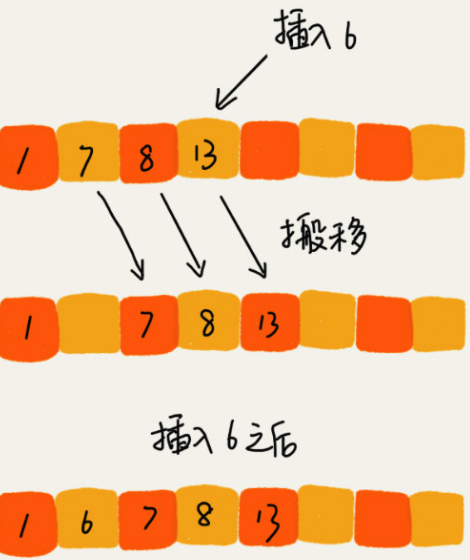 插入 6
1 7 8 13
搬移
1 7 8 13
插入 6 之后
1 6 7 8 13